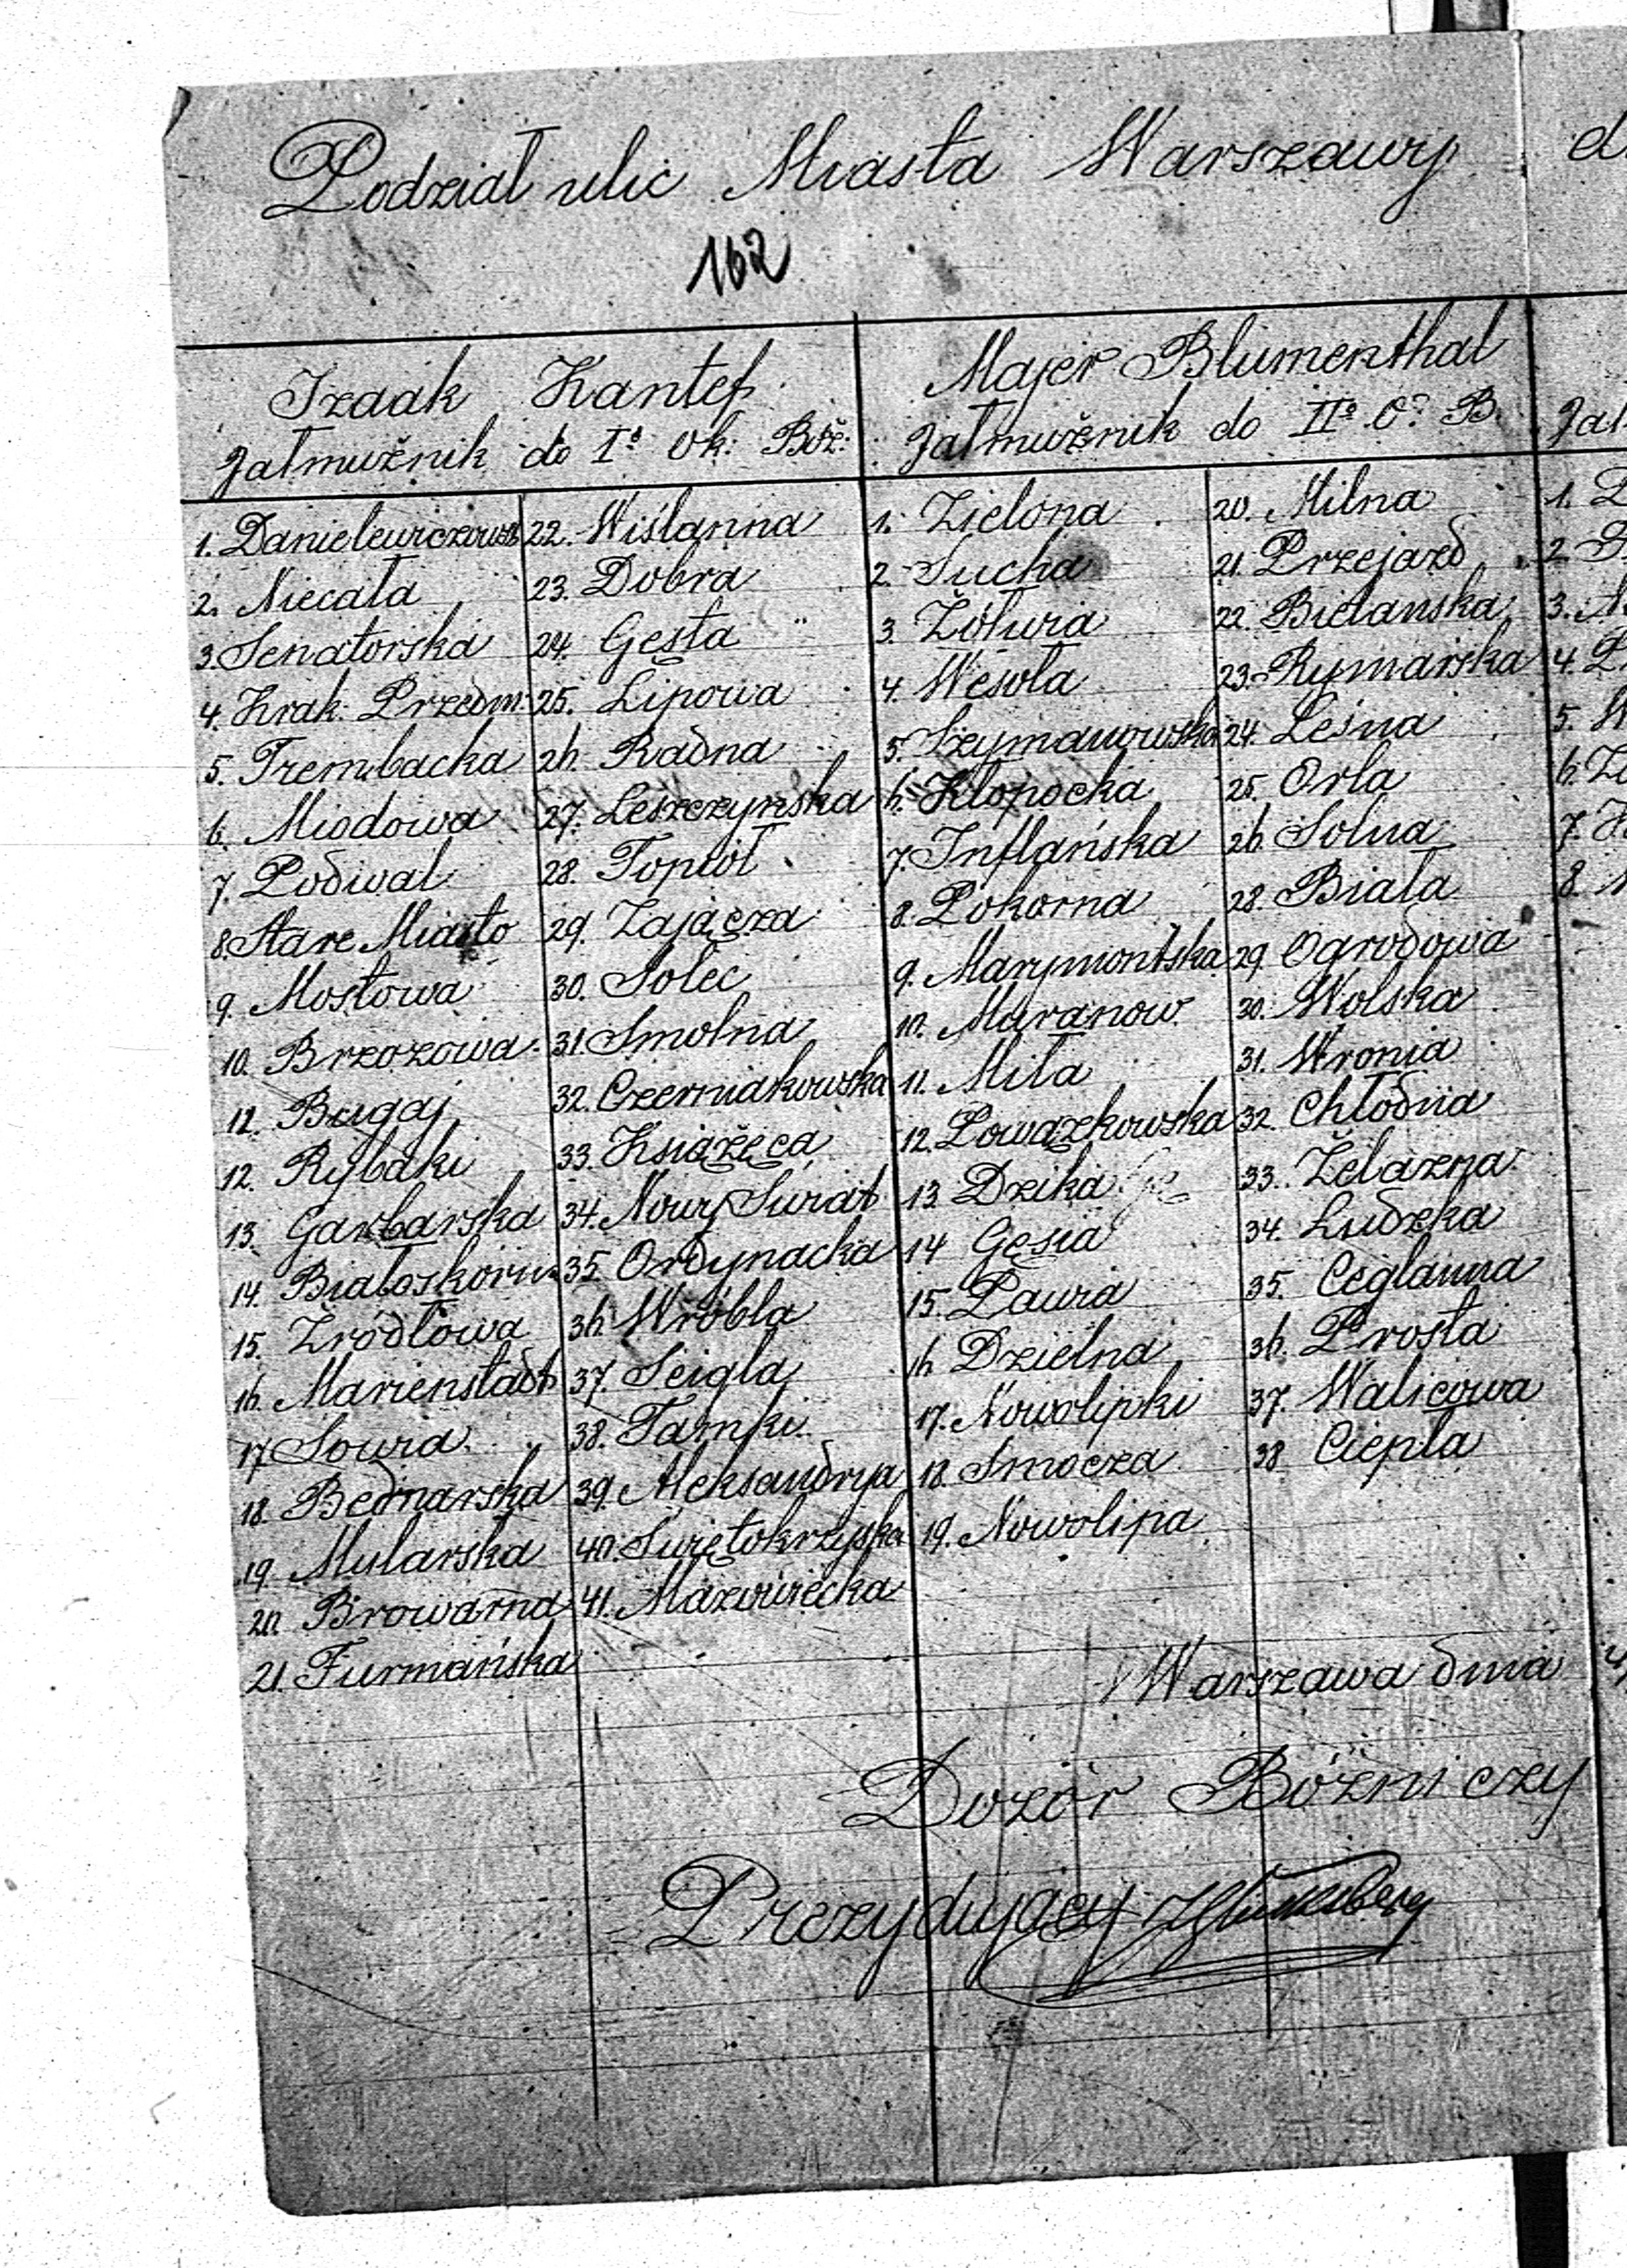 Podział ulic Miasta Warszawy
162
Izaak Kantef
Jałmużnik do Iº Ok: Boż:
1. Danielewiczowsk
2. Niecała
3. Senatorska
4. Krak. Przedm.
5. Trembacka
6. Miodowa
7. Podwal
8. Stare Miasto
9. Mostowa
10. Brzozowa
12. Bugaj
12. Rybaki
13. Garbarska
14. Białoskórn
15. Źródłowa
16. Marienstadt
17 Sowia
18. Bednarska
19 Mularska
20. Browarna
21. Furmańska
22. Wiślanna
23. Dobra
24. Gęsta
25. Lipowa
26. Radna
27. Leszczynska
28. Topiól
29. Zającza
30. Solec
31. Smolna
32. Czerniakowska
33. Książęca
34. Nowy Swiat
35. Ordynacka
36. Wróbla
37. Scigla
38. Tamki
39. Aleksandrya
40. Swiętokrzyska
41. Mazowiecka
Majer Blumenthal
Jałmużnik do IIº O? B
1. Zielona
2. Sucha
3. Żółwia
4. Wesoła
5. Szymanowska
6. Kłopocka
7. Inflańska
8. Pokorna
9. Marymontska
10. Muranow
11. Miła
12. Powązkowska
13 Dzika
14 Gęsia
15. Pawia
16 Dzielna
17. Nowolipki
18. Smocza
19. Nowolipa
20. Milna
21. Przejazd
22. Bielanska
23. Rymarska
24. Leśna
25. Orla
26. Solna
28. Biała
29. Ogrodowa
30. Wolska
31. Wronia
32. Chłodna
33. Żelazna
34. Ludzka
35. Ceglanna
36. Prosta
37. Walicowa
38 Ciepła
Warszawa dnia
Dozór Bóżniczy
Prezydujący